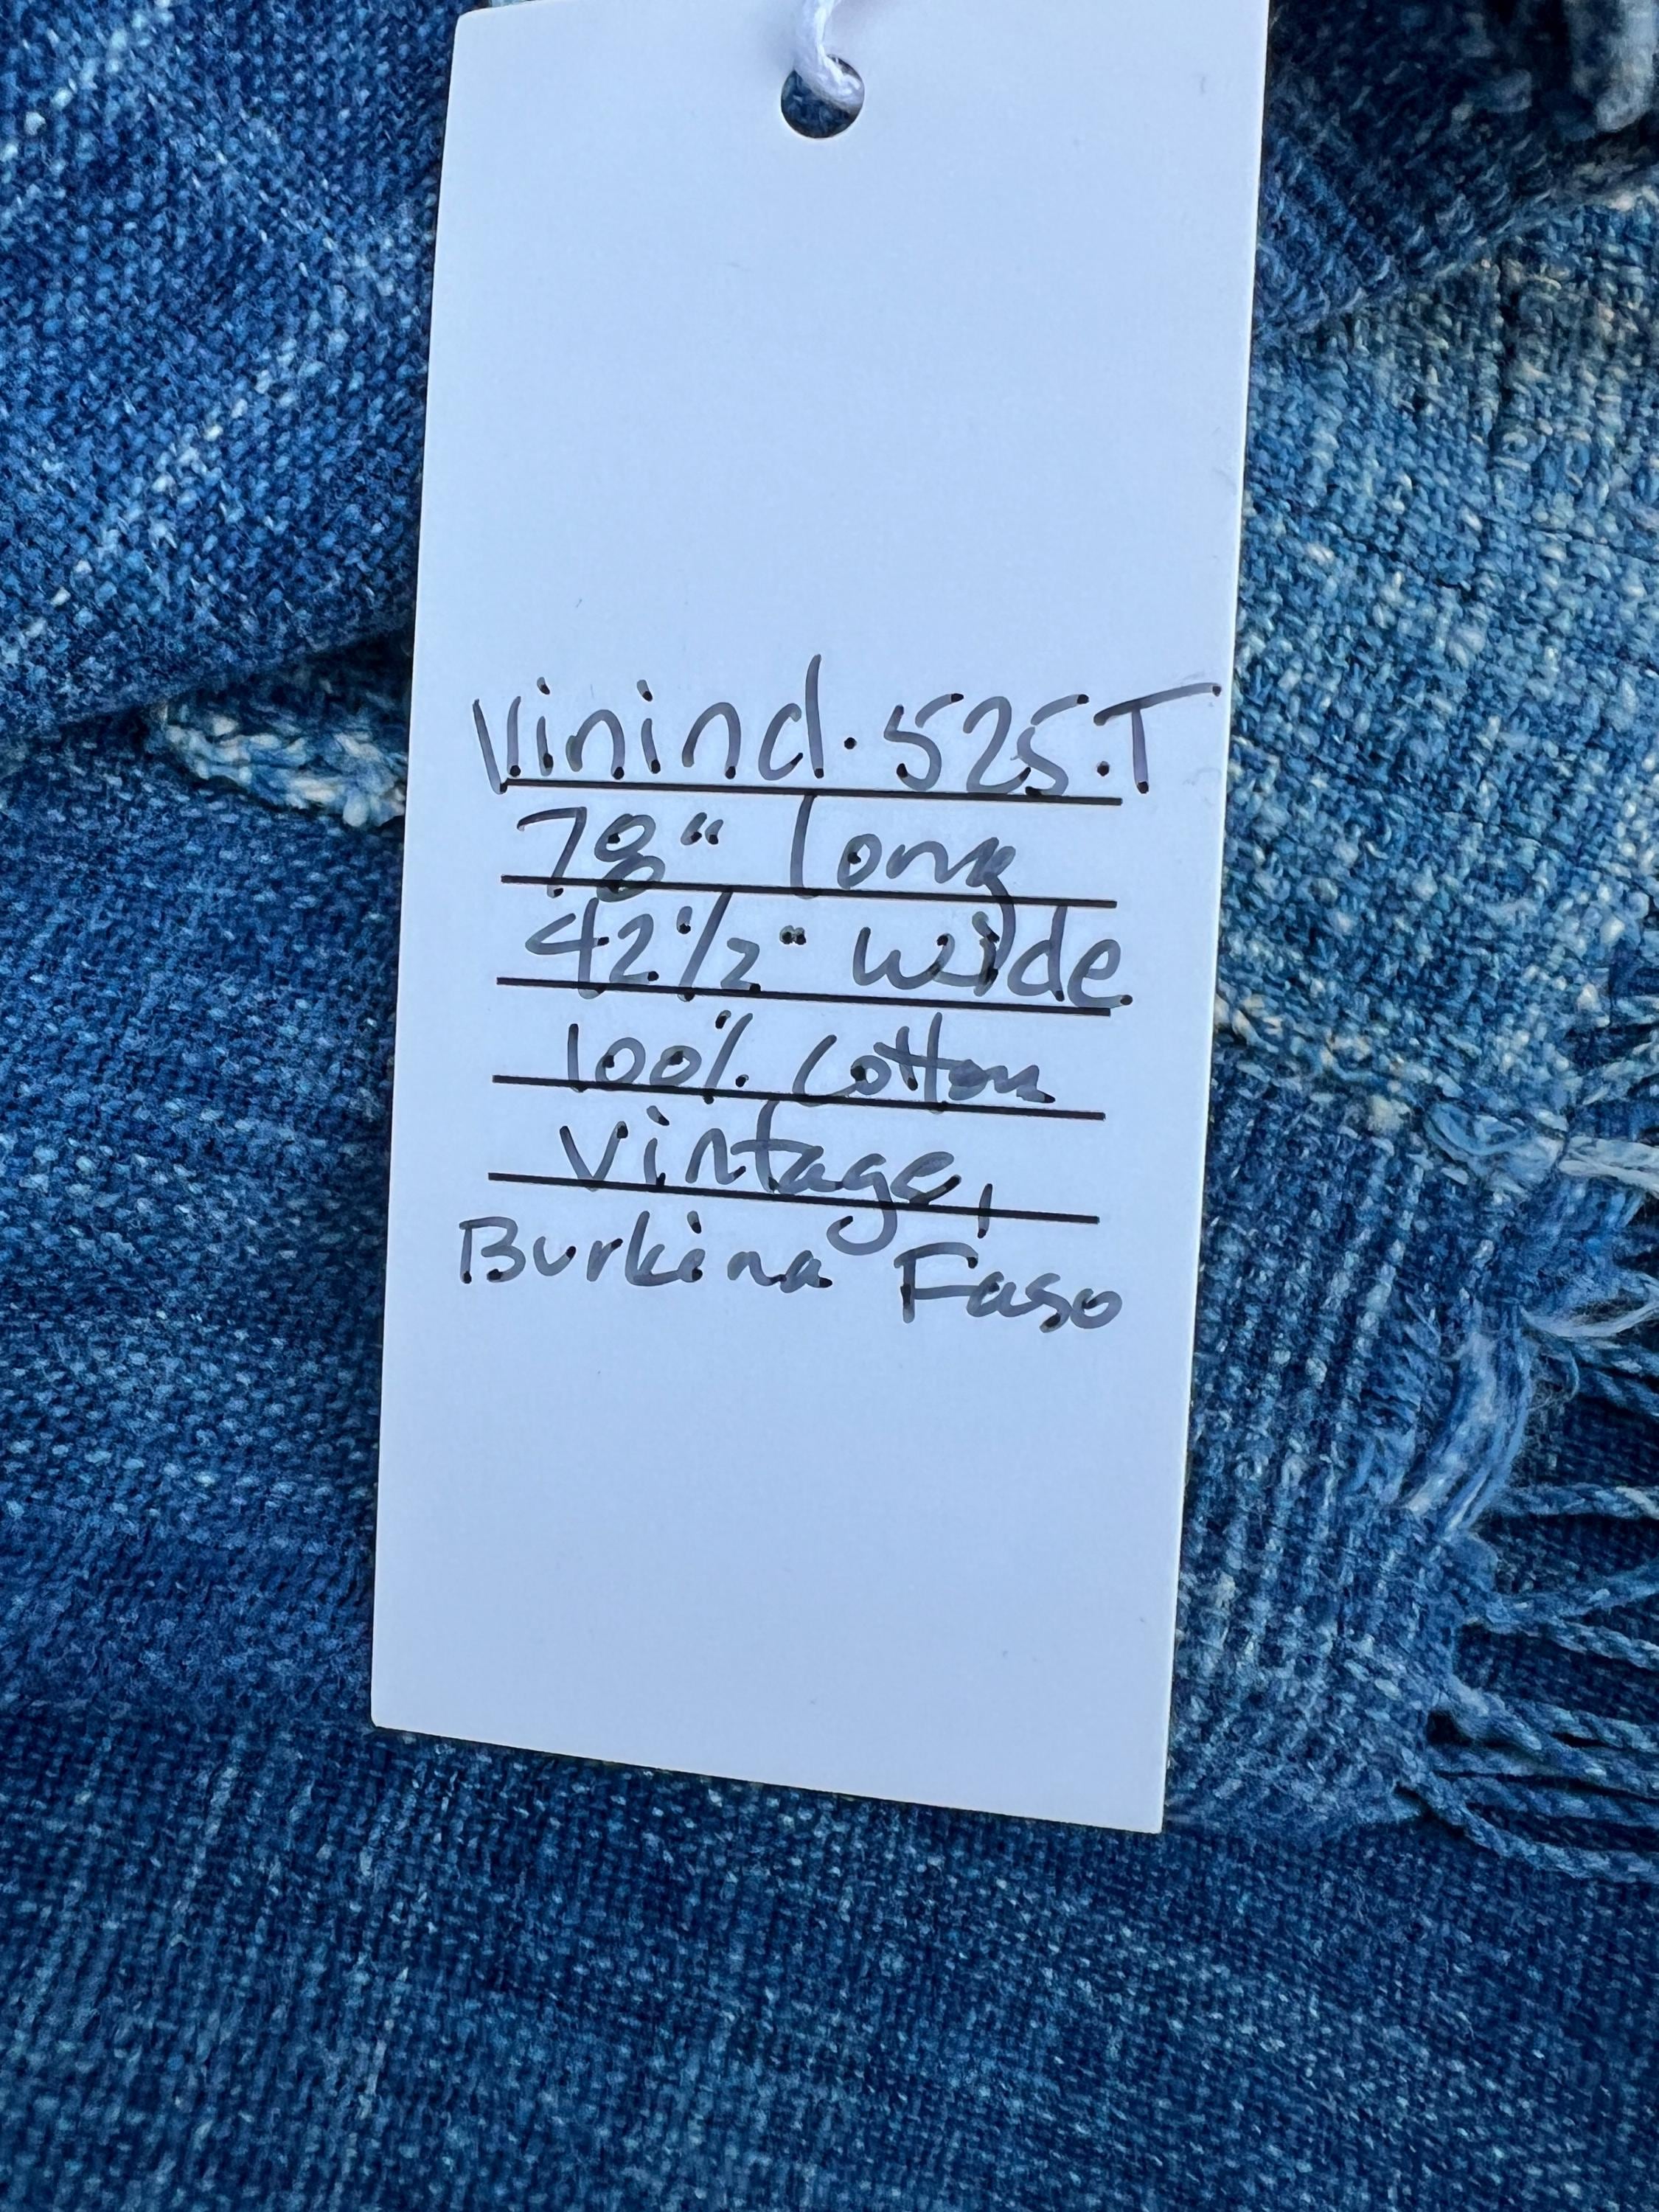 Vinind. 525.T
78" long
42 1/2" wide
100% cotton
vintage,
Burkina Faso